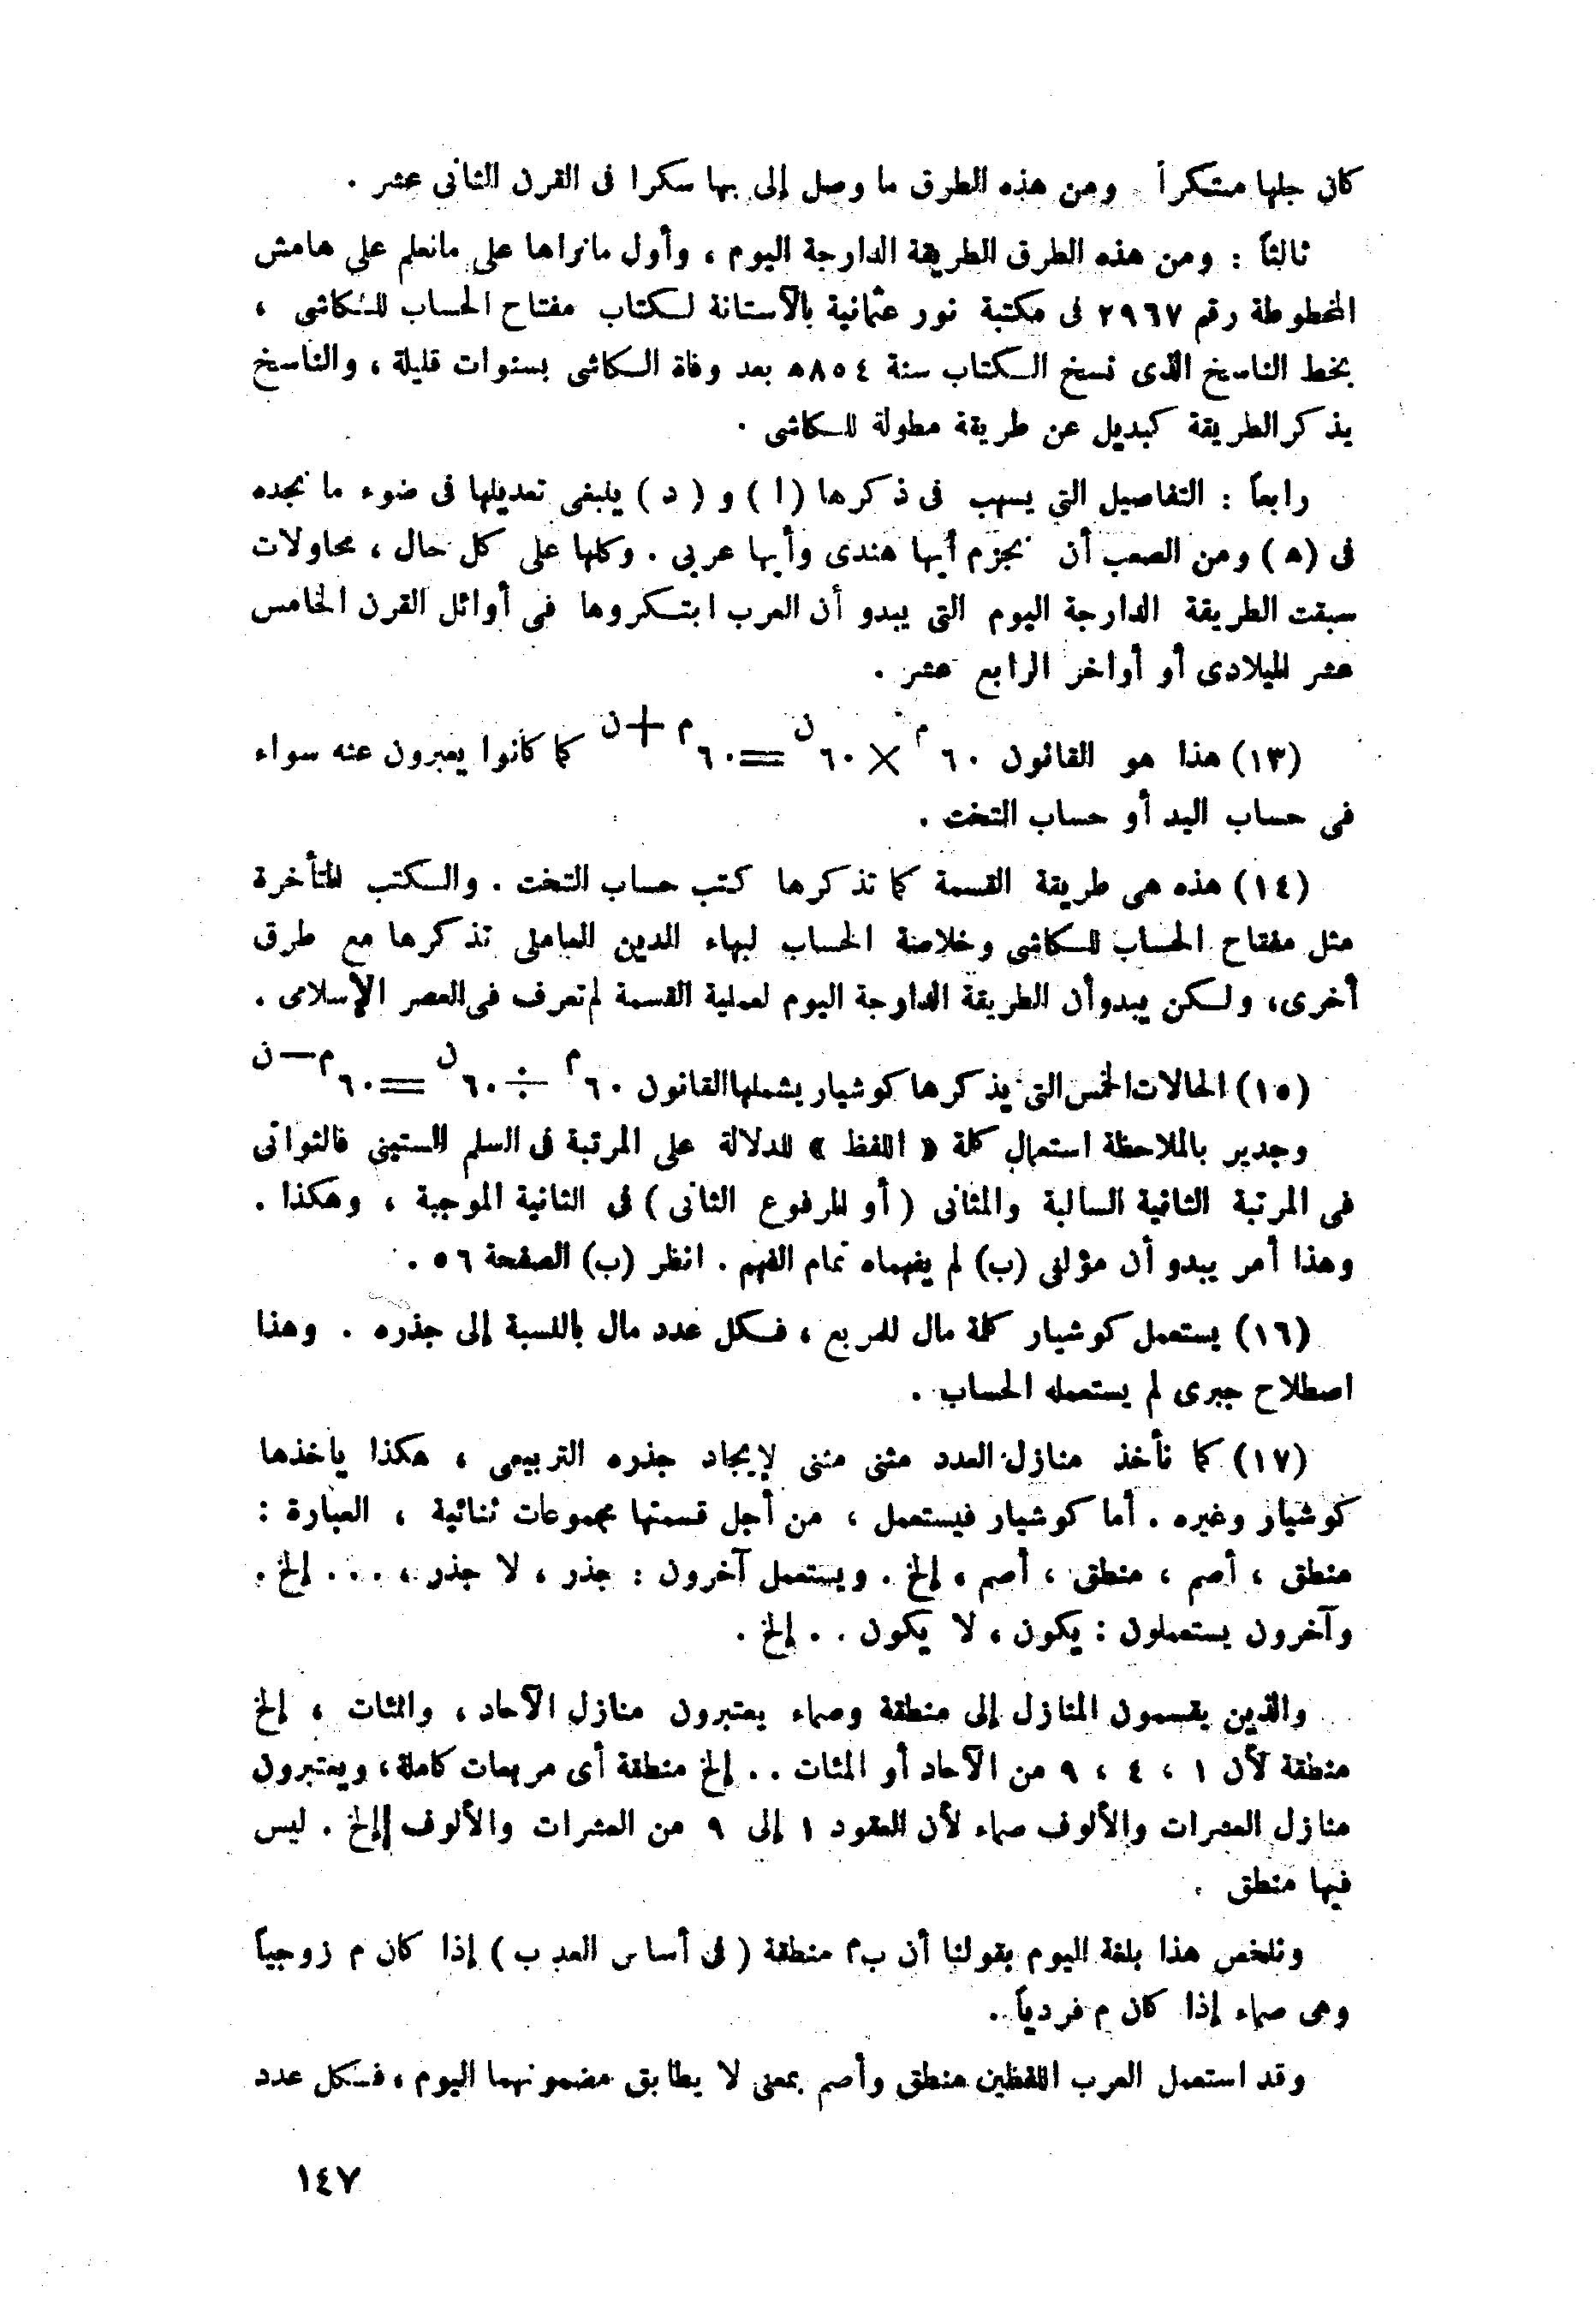 كان جلها مبتكراً . ومن هذه الطرق ما وصل إلى بهاسكرا فى القرن الثانى عشر .
ثالثاً : ومن هذه الطرق الطريقة الدارجة اليوم ، وأول مانراها على مانعلم على هامش
المخطوطة رقم ٢٩٦٧ فى مكتبة نور عثمانية بالآستانة لكتاب مفتاح الحساب للكاشى ،
بخط الناسخ الذى نسخ الكتاب سنة ٨٥٤ه بعد وفاة الكاشى بسنوات قليلة ، والناسخ
يذكر الطريقة كبديل عن طريقة مطولة للكاشى .
رابعاً : التفاصيل التى يسهب فى ذكرها (ا) و (د) ينبغى تعديلها فى ضوء ما نجده
فى (ه) ومن الصعب أن نجزم أيها هندى وأيها عربى . وكلها على كل حال ، محاولات
سبقت الطريقة الدارجة اليوم التى يبدو أن العرب ابتكروها فى أوائل القرن الخامس
عشر الميلادى أو أواخر الرابع عشر .
(١٣) هذا هو القانون ٦٠^م × ٦٠^ن = ٦٠^م+ن كما كانوا يعبرون عنه سواء
فى حساب اليد أو حساب التخت .
(١٤) هذه هى طريقة القسمة كما تذكرها كتب حساب التخت . والكتب المتأخرة
مثل مفتاح الحساب للكاشى وخلاصة الحساب لبهاء الدين العاملى تذكرها مع طرق
أخرى، ولكن يبدوأن الطريقة الدارجة اليوم لعملية القسمة لم تعرف فى العصر الإسلامى .
(١٥) الحالات الخمس التى يذكرها كوشيار يشملها القانون ٦٠^م ÷ ٦٠^ن = ٦٠^م—ن
وجدير بالملاحظة استعمال كلمة « اللفظ » للدلالة على المرتبة فى السلم الستينى فالثوانى
فى المرتبة الثانية السالبة والمثانى (أو المرفوع الثانى) فى الثانية الموجبة ، وهكذا .
وهذا أمر يبدو أن مؤلفى (ب) لم يفهماه تمام الفهم . انظر (ب) الصفحة ٥٦ .
(١٦) يستعمل كوشيار كلمة مال للمربع ، فكل عدد مال بالنسبة إلى جذره . وهذا
اصطلاح جبرى لم يستعمله الحساب .
(١٧) كما نأخذ منازل العدد مثنى مثنى لإيجاد جذره التربيعى ، هكذا يأخذها
كوشيار وغيره . أما كوشيار فيستعمل ، من أجل قسمتها مجموعات ثنائية ، العبارة :
منطق ، أصم ، منطق ، أصم ، إلخ . ويستعمل آخرون : جذر ، لا جذر ، ... إلخ .
وآخرون يستعملون : يكون ، لا يكون .. إلخ .
والذين يقسمون المنازل إلى منطقة وصماء يعتبرون منازل الآحاد ، والمئات ، إلخ
منطقة لأن ١ ، ٤ ، ٩ من الآحاد أو المئات .. إلخ منطقة أى مربعات كاملة ، ويعتبرون
منازل العشرات والألوف صماء لأن العقود ١ إلى ٩ من العشرات والألوف إلخ . ليس
فيها منطق .
ونلخص هذا بلغة اليوم بقولنا أن ب^م منطقة (فى أساس العد ب) إذا كان م زوجياً
وهى صماء إذا كان م فردياً .
وقد استعمل العرب اللفظين منطق وأصم بمعنى لا يطابق مضمونهما اليوم ، فكل عدد
١٤٧